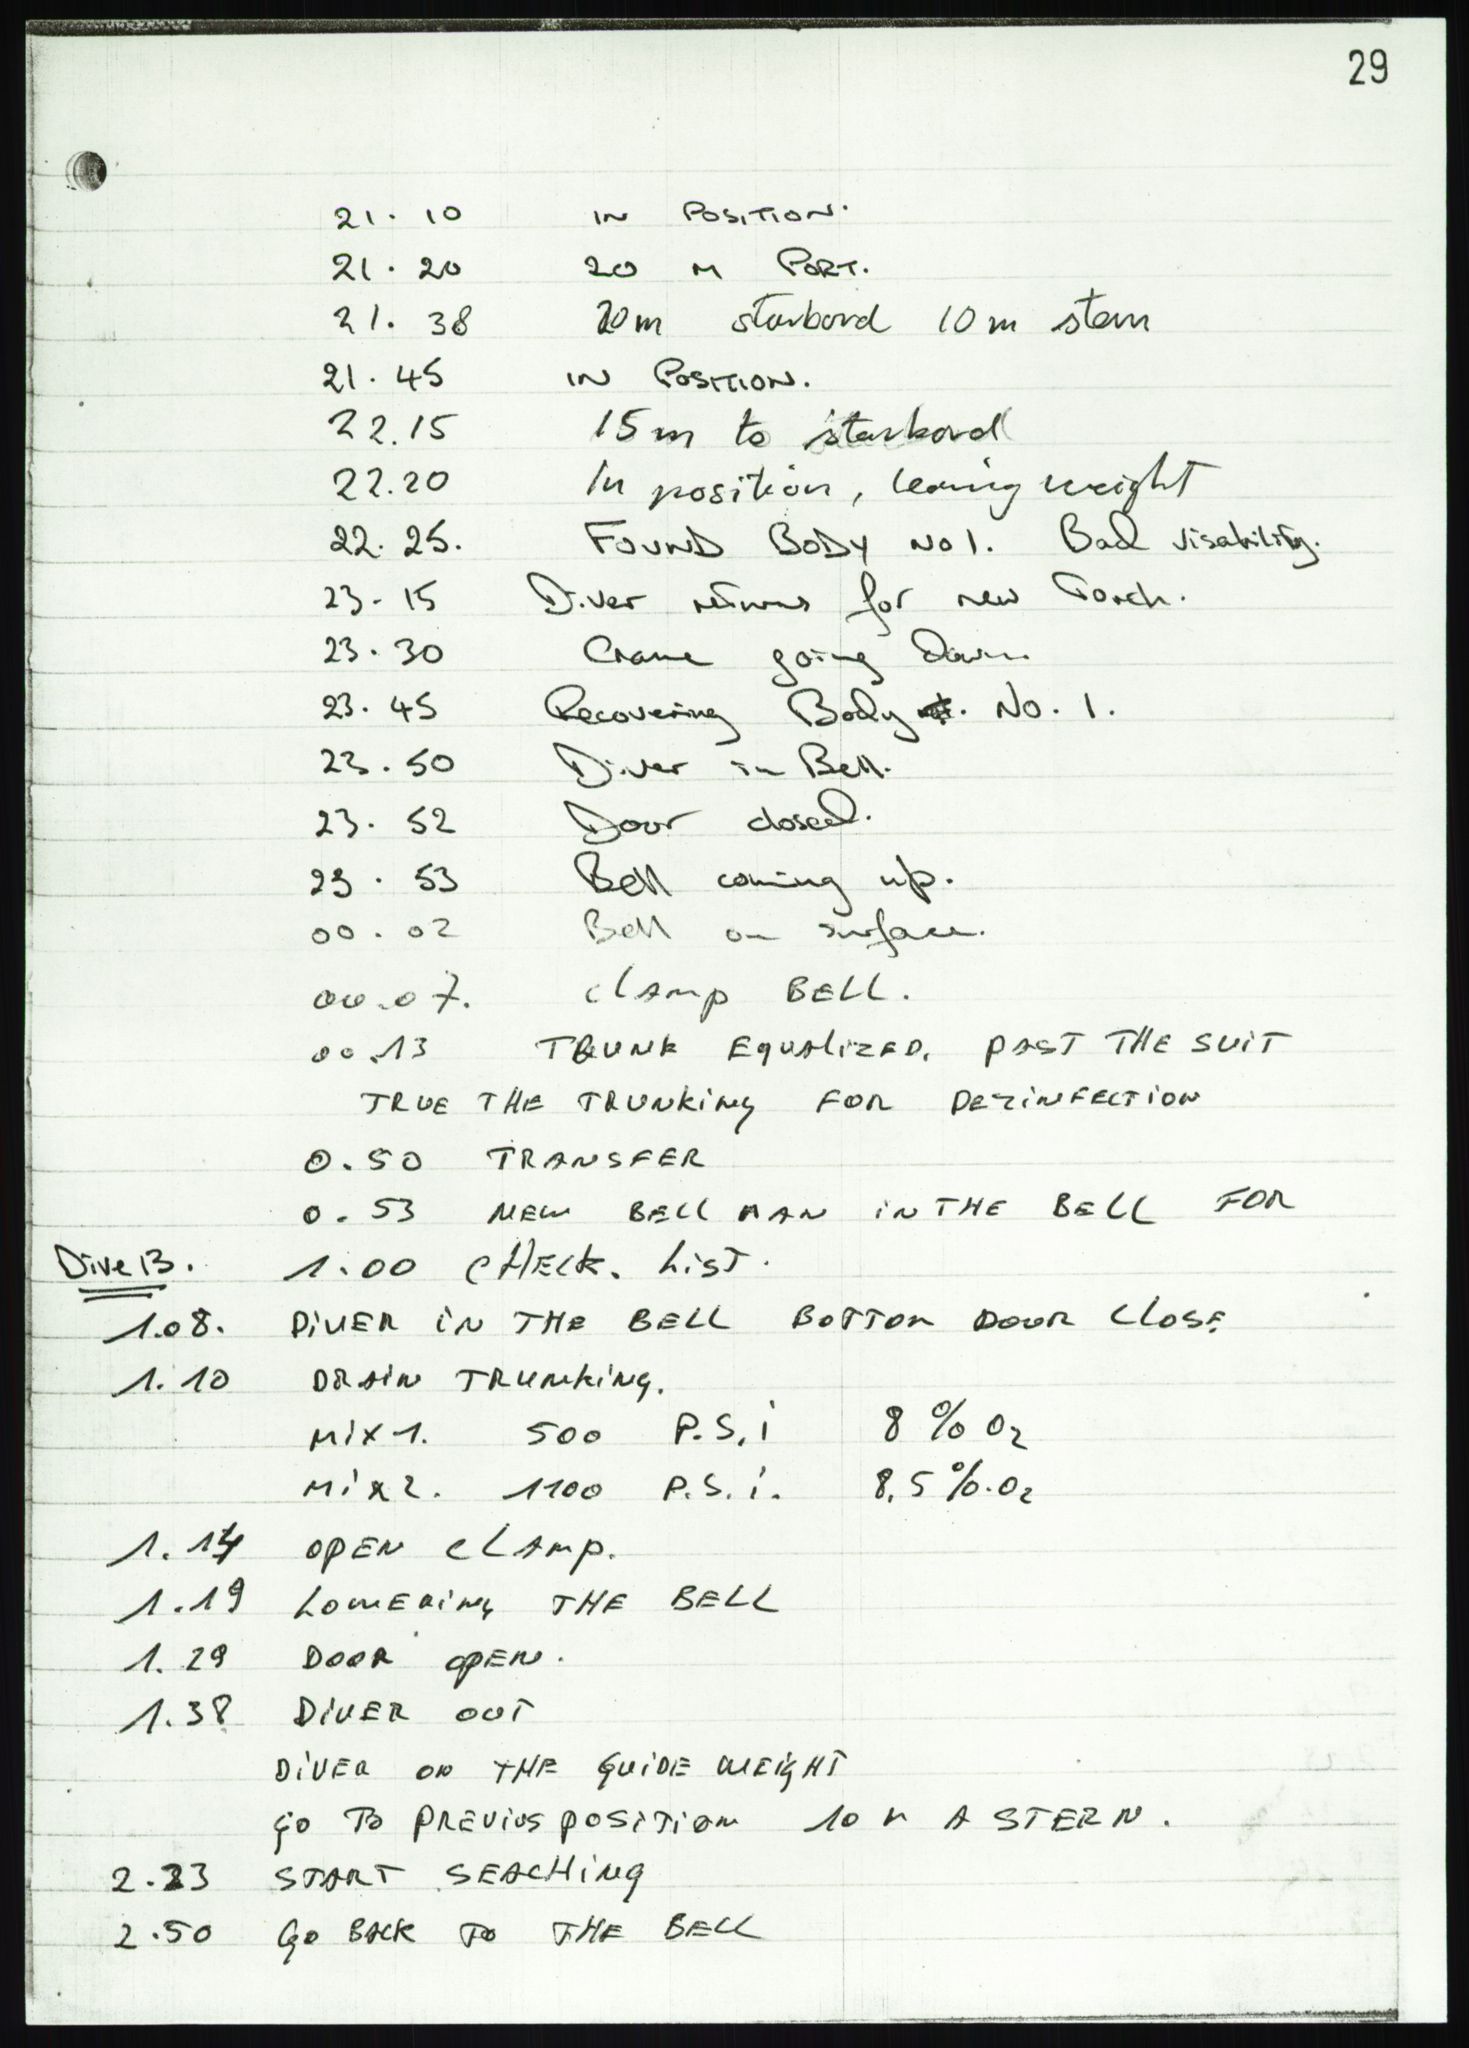 29
21.10 IN POSITION.
21.20 20 M PORT.
21.38 20m starbord 10m stern
21.45 IN POSITION.
22.15 15m to starbord
22.20 In position, leaving weight
22.25. FOUND BODY No 1. Bad visability.
23.15 Diver returns for new Torch.
23.30 Crane going Down.
23.45 Recovering Body No. 1.
23.50 Diver in Bell.
23.52 Door closed.
23.53 Bell coming up.
00.02 Bell on surface.
00.07. CLAMP BELL.
00.13 TRUNK EQUALIZED. PAST THE SUIT
TRUE THE TRUNKING FOR DEZINFECTION
0.50 TRANSFER
0.53 NEW BELL MAN IN THE BELL FOR
Dive 13. 1.00 CHECK. LIST.
1.08. DIVER IN THE BELL BOTTOM DOOR CLOSE
1.10 DRAIN TRUNKING.
MIX 1. 500 P.S.i 8 % O2
MIX 2. 1100 P.S.i. 8,5 %.O2
1.14 OPEN CLAMP.
1.19 LOWERING THE BELL
1.29 DOOR OPEN.
1.38 DIVER OUT
DIVER ON THE GUIDE WEIGHT
GO TO PREVIUS POSITION 10 M A STERN.
2.23 START SEACHING
2.50 GO BACK TO THE BELL